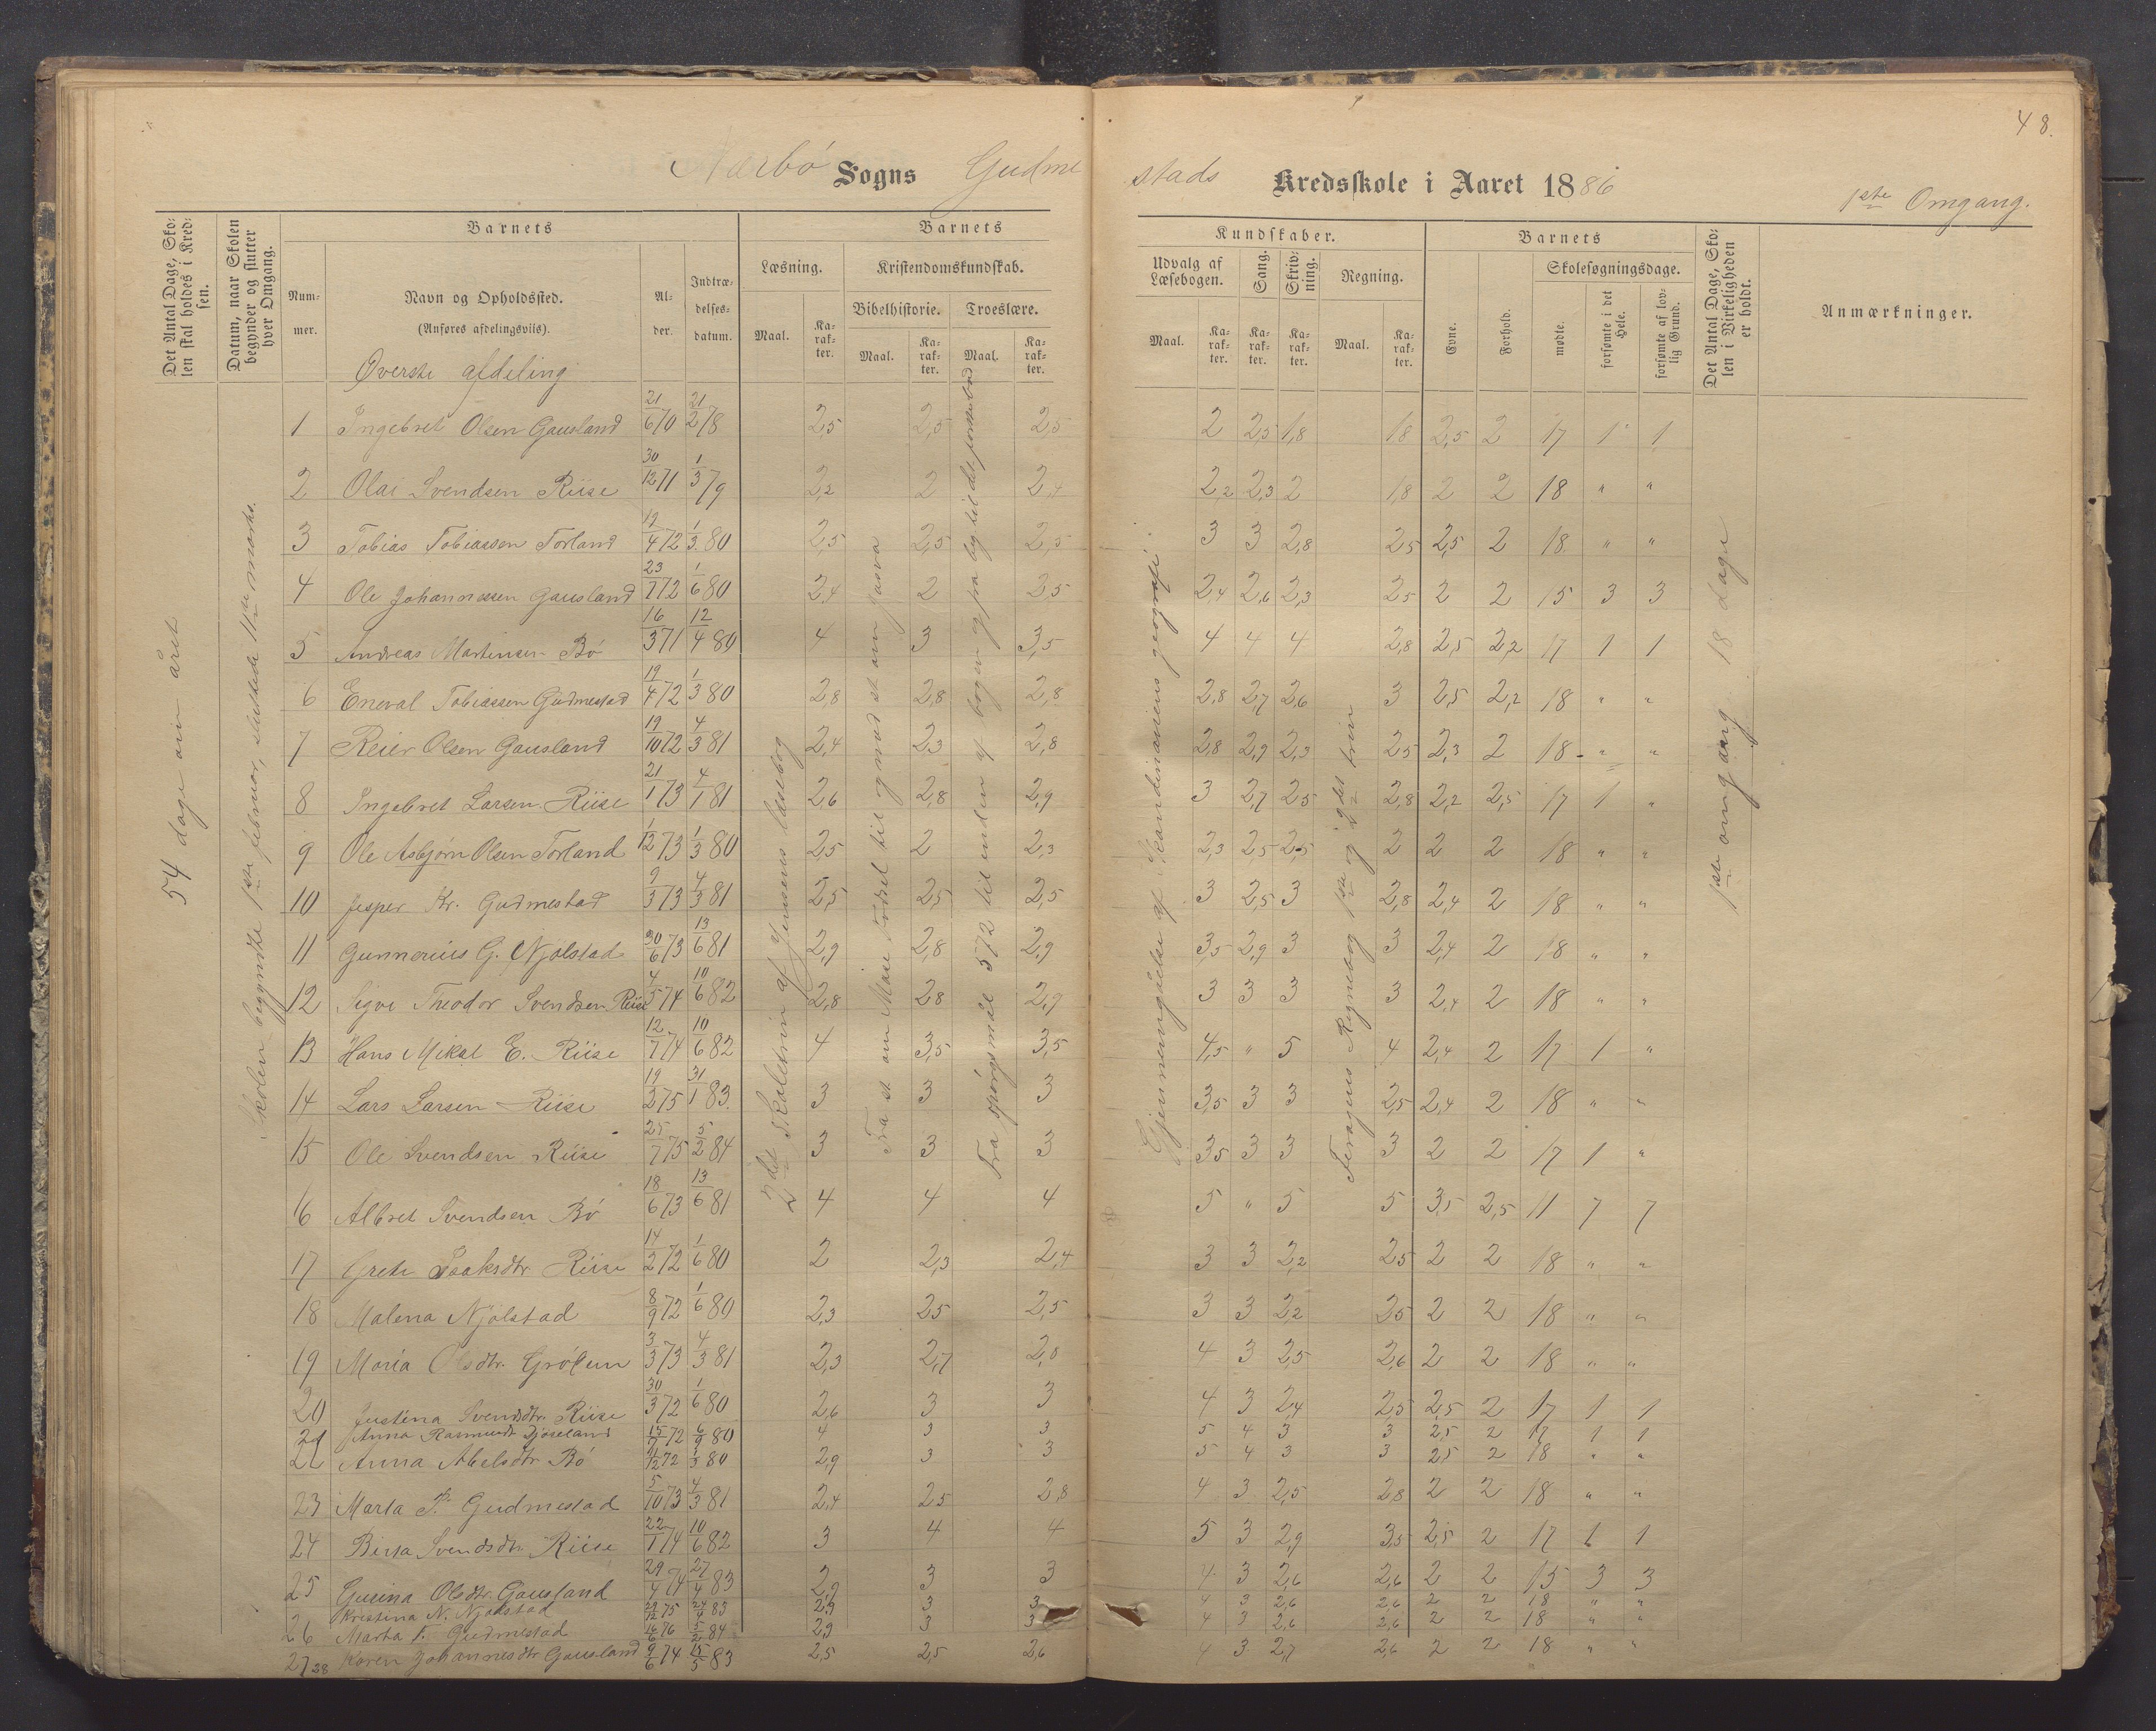 48.
Nærbø Sogns Gudme
stads Kredsskole i Aaret 1886
1ste Omgang.
Det Antal Dage, Sko-
len skal holdes i Kred-
sen.
Datum, naar Skolen
begynder og slutter
hver Omgang.
Barnets
Num-
mer.
Navn og Opholdssted.
(Anføres afdelingsvils).
Al-
der.
Indtræ-
delses-
datum.
Barnets
Læsning.
Maal.
Ka-
rak-
ter.
Kristendomskundskab.
Bibelhistorie.
Maal.
Ka-
rak-
ter.
Troeslære.
Maal.
Ka-
rak-
ter.
Kundskaber.
Udvalg af
Læsebogen.
Maal.
Ka-
rak-
ter.
Sang.
Ka-
rak-
ter.
Skriv-
ning.
Ka-
rak-
ter.
Regning.
Maal.
Ka-
rak-
ter.
Barnets
Evne.
Forhold.
Skolesøgningsdage.
mødte.
forsømte i det
Hele.
forsømte af lov-
lig Grund.
Det Antal Dage, Sko-
len i Virkeligheden
er holdt.
Anmærkninger.
Øverste afdeling
54 dage om året
Skolen begyndte 1ste februar, sluttede 11te marts.
2det Skoletrin af Jensens læsebog
Fra st. om Mose Fødsel til og med st. om Josva
Fra spørgsmål 572 til enden af bogen og fra beg. til det
Gjennemgåelse af Skandinaviens geografi.
Feragens Regnebog 1ste og 2det trin
1ste omgang 18 dage
1 Ingebret Olsen Gausland 21/6 70 21/2 78 2,5 2,5 2,5 2 2,5 1,8 1,8 2,5 2 17 1 1
2 Olai Svendsen Riise 30/12 71 1/3 79 2,2 2 2,4 2,2 2,3 2 1,8 2 2 18 " "
3 Tobias Tobiassen Torland 19/4 72 1/3 80 2,5 2,5 2,5 3 3 2,8 2,5 2,5 2 18 " "
4 Ole Johannessen Gausland 23/7 72 1/6 80 2,4 2 2,5 2,4 2,6 2,3 2,5 2 2 15 3 3
5 Andreas Martinsen Bø 16/3 71 12/4 80 4 3 3,5 4 4 4 2,8 2,5 2,2 17 1 1
6 Eneval Tobiassen Gudmestad 19/4 72 1/3 80 2,8 2,8 2,8 2,8 2,7 2,6 3 2,5 2,2 18 " "
7 Reier Olsen Gausland 19/10 72 4/3 81 2,4 2,3 2,8 2,8 2,9 2,3 2,5 2,3 2 18 " "
8 Ingebret Larsen Riise 21/1 73 4/1 81 2,6 2,8 2,9 3 2,7 2,5 2,8 2,2 2,5 17 1 "
9 Ole Asbjørn Olsen Torland 1/12 73 1/3 80 2,5 2 2,3 2,3 2,5 2,5 2 2 2 18 " "
10 Jesper Kr. Gudmestad 9/3 73 4/3 81 2,5 2,5 2,5 3 2,5 3 2,8 2,4 2 18 " "
11 Gunnerius G. Njølstad 30/6 73 13/6 81 2,9 2,8 2,9 3,5 2,9 3 3 2,4 2 18 " "
12 Sigve Theodor Svendsen Riise 4/5 74 10/6 82 2,8 2,8 2,9 3 3 3 3 2,4 2 18 " "
13 Hans Mikal E. Riise 12/7 74 10/6 82 4 3,5 3,5 4,5 " 5 4 2,4 2 17 1 "
14 Lars Larsen Riise 19/2 75 31/1 83 3 3 3 3,5 3 3 2,5 2,4 2 18 " "
15 Ole Svendsen Riise 25/7 75 5/2 84 3 3 3 3,5 3 3 3 2 2 17 1 "
16 Albret Svendsen Bø 18/6 73 13/6 81 4 4 4 5 " 5 5 3,5 2,5 11 7 7
17 Grete Isaksdtr Riise 14/2 72 1/6 80 2 2,3 2,4 3 3 2,2 2,5 2 2 18 " "
18 Malena Njølstad 8/9 72 1/6 80 2,3 2,5 2,5 3 3 2,2 2,5 2 2 18 " "
19 Maria Olsdtr. 3/3 73 4/3 81 2,3 2,7 2,8 4 3 2,5 2,6 2 2 18 " "
20 Justina Svendsdtr. Riise 30/3 72 1/6 80 2,6 3 3 4 3 2,4 2,5 2,5 2 17 1 1
21 Anna Rasmusdt 15/7 72 6/9 80 4 3 3 5 4 3 3 2,5 2 17 1 1
22 Anna Abelsdtr Bø 11/12 72 1/3 80 2,9 3 3 5 4 3 3 2,5 2 18 " "
23 Marta P. Gudmestad 5/10 73 4/3 81 2,4 2,5 2,8 4 3 2,5 2,8 2 2 18 " "
24 Berta Svendsdtr. Riise 22/1 74 10/6 82 3 4 4 5 3 2,9 3,5 2,5 2 17 1 1
25 Gurina Olsdtr. Gausland 29/4 74 27/4 83 2,9 3 3 4 3 2,6 2,6 2 2 15 3 3
Kristina N. Njølstad 29/12 75 27/4 83 2,9 3 3 4 3 2,6 2,6 2 2 18 " "
26 Marta P. Gudmestad 16/6 76 5/2 84 2,9 3 3 4 3 2,6 2,6 2 2 18 " "
27 28 Karen Johannesdtr Gausland 9/6 74 15/5 83 2,5 2,5 2,6 4 3 2,7 2,6 2 2 18 " "